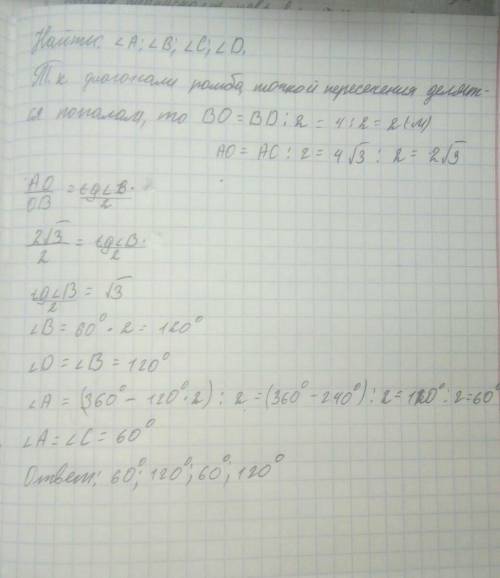 Найти: ∠A; ∠B; ∠C; ∠D.
Т.к диагонали ромба точкой пересечения делят-
ся пополам, то BO = BD : 2 = 4 : 2 = 2 (м)
AO = AC : 2 = 4√3 : 2 = 2√3
AO/OB = tg∠B/2.
2√3/2 = tg∠B/2.
tg∠B/2 = √3
∠B = 60° · 2 = 120°
∠D = ∠B = 120°
∠A = (360° - 120° · 2) : 2 = (360° - 240°) : 2 = 120° : 2 = 60°
∠A = ∠C = 60°
Ответ: 60°; 120°; 60°; 120°